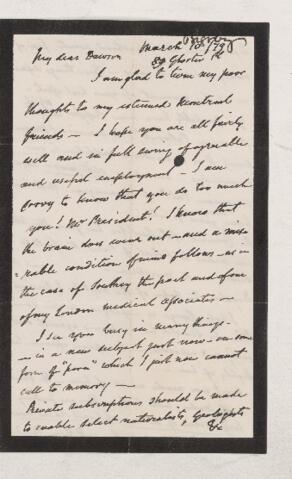 March 10/79
My dear Dawson
I am glad to turn my poor
thoughts to my esteemed Montreal
friends – I hope you are all fairly
well and in full swing of agreeable
and useful employment – I am
sorry to know that you do too much
you! Mr President! I know that
the brain does wear out – and a mise
rable condition of mind follows – as in
the case of Southey the poet and of one
of my London medical associates –
I see you busy in many things –
– in a new subject just now – on some
form of " " which I just now cannot
call to memory –
Private subscriptions should be made
to enable select naturalists, geologists
&c